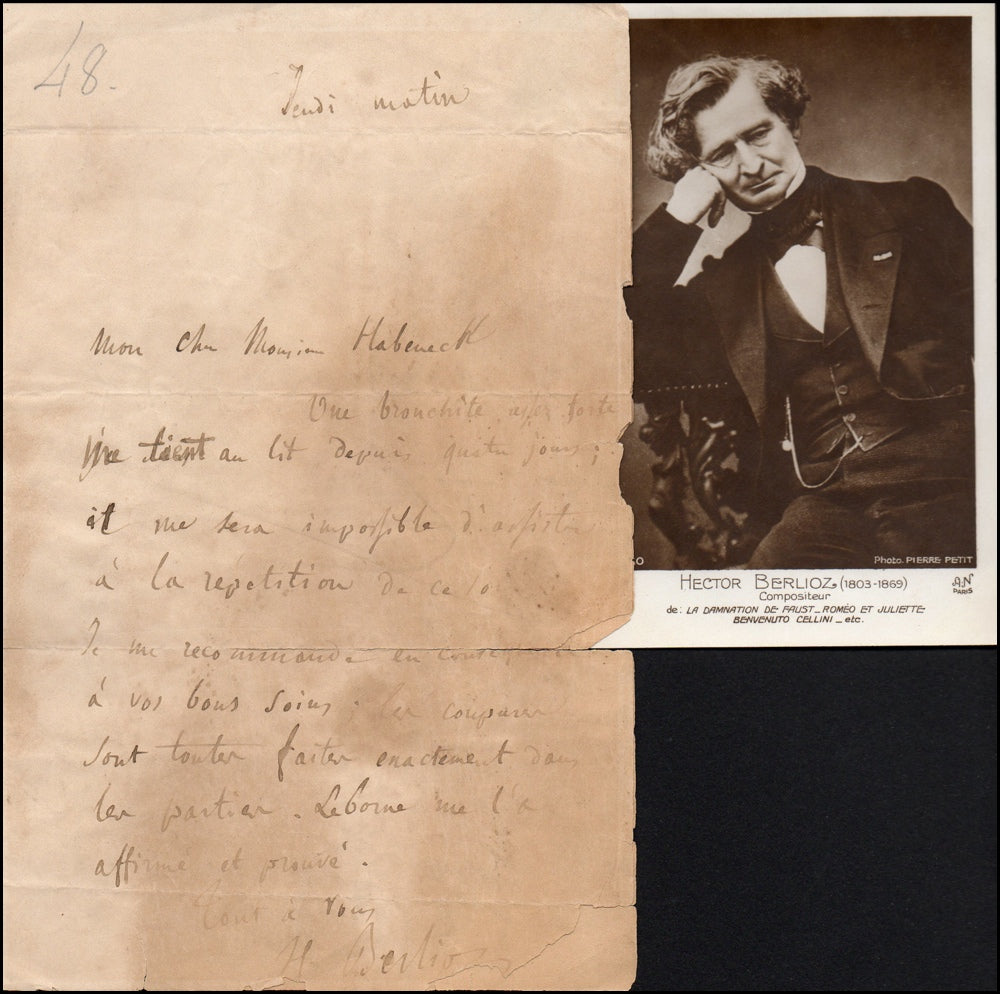 48.
Jeudi matin
Mon cher Monsieur Habeneck
Une bronchite assez forte
me tient au lit depuis quatre jours ;
il me sera impossible d'assister
à la répétition de ce so
Je me recommande en
à vos bons soins ; les coupures
sont toutes faites exactement dans
les parties. Leborne me l'a
affirmé et prouvé.
Tout à vous
H. Berlioz
Photo. PIERRE PETIT
HECTOR BERLIOZ, (1803-1869)
A.N PARIS
Compositeur
de: LA DAMNATION DE FAUST_ ROMÉO ET JULIETTE
BENVENUTO CELLINI _ etc.